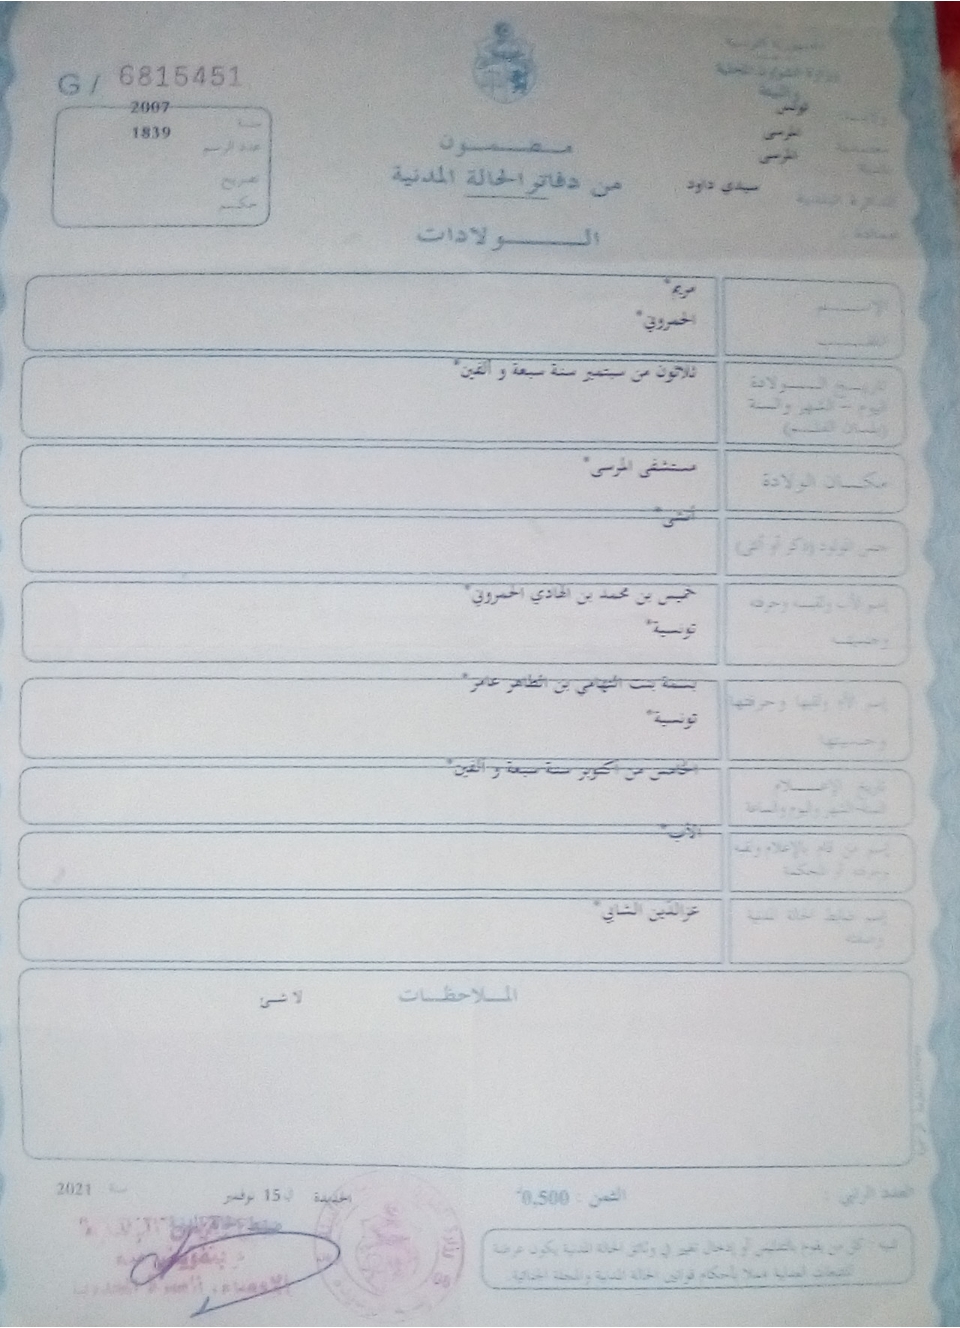 الجمهورية التونسية
وزارة الشؤون المحلية
والبيئة
ولاية: تونس
معتمدية المرسى
بلدية المرسى
الدائرة البلدية سيدي داود
G / 6815451
سنة 2007
عدد الرسم 1839
تصريح
حكم
مضمون
من دفاتر الحالة المدنية
الولادات
الإسم مريم*
اللقب الحمروني*
تاريخ الولادة ثلاثون من سبتمبر سنة سبعة و ألفين*
اليوم – الشهر والسنة
(بلسان القلم)
مكان الولادة مستشفى المرسى*
جنس المولود (ذكر أو أنثى) أنثى*
إسم الأب ولقبه وحرفته خميس بن محمد بن الهادي الحمروني*
وجنسيته تونسية*
إسم الأم ولقبها وحرفتها بسمة بنت التهامي بن الطاهر عامر*
وجنسيتها تونسية*
تاريخ الإعلام الخامس من أكتوبر سنة سبعة و ألفين*
السنة الشهر واليوم والساعة
إسم من قام بالإعلام ولقبه الأب*
وحرفته أو المحكمة
إسم ضابط الحالة المدنية عزالدين الشابي*
وصفته
الملاحظات لا شئ
العدد الرتبي :
الثمن : 0,500*
الحديدة في 15 نوفمبر سنة 2021
تنبيه - كل من يقوم بالتدليس أو إدخال تغيير في وثائق الحالة المدنية يكون عرضة
للتتبعات العدلية عملا بأحكام قوانين الحالة المدنية والمجلة الجنائية.